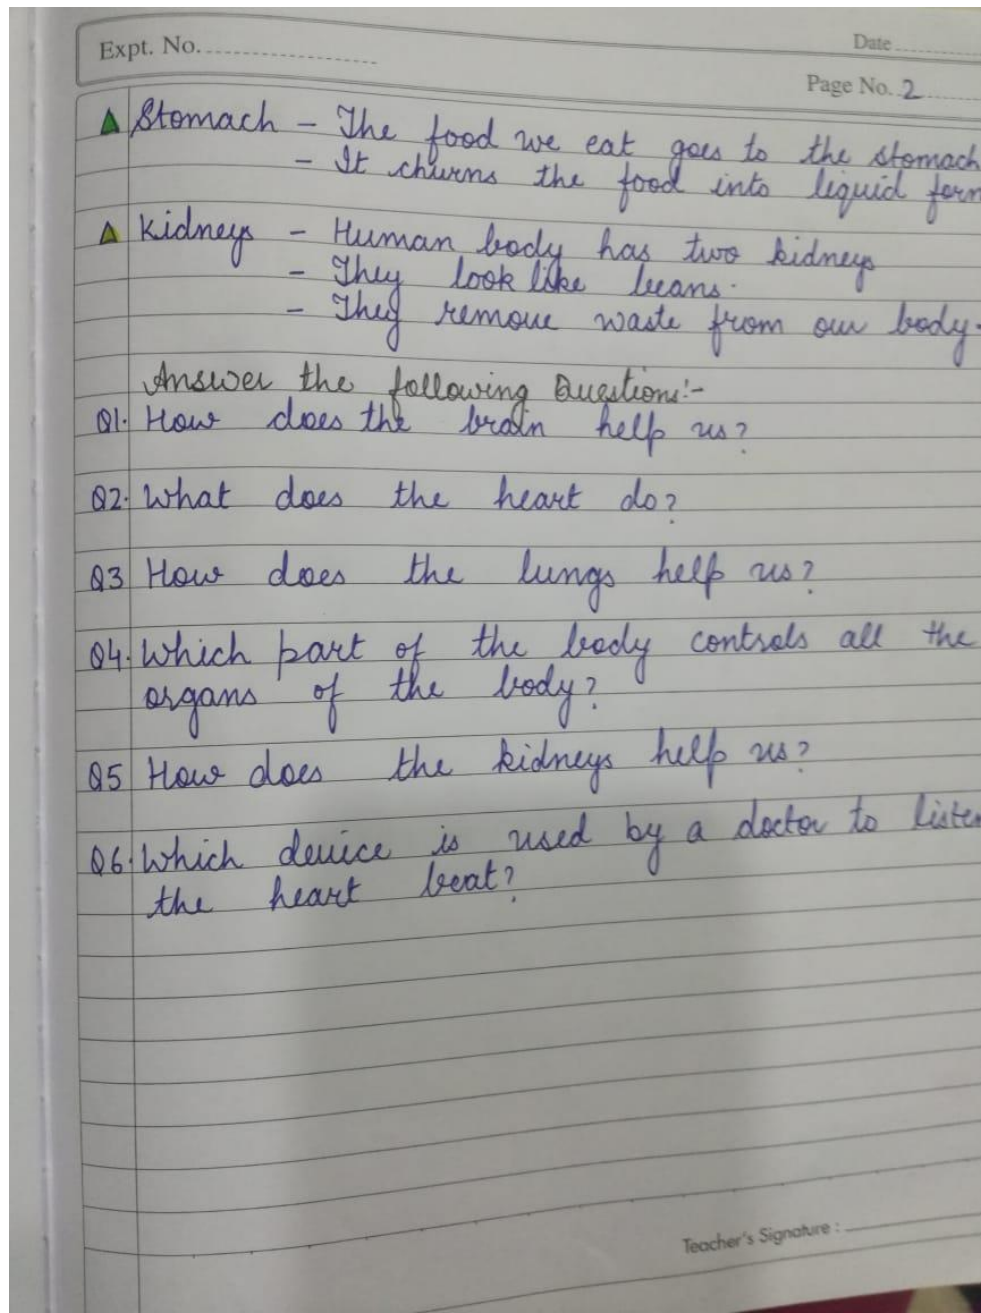 Expt. No.
Date
Page No. 2
Stomach - The food we eat goes to the stomach
- It churns the food into liquid form
Kidneys - Human body has two kidneys
- They look like beans.
- They remove waste from our body.
Answer the following Questions:-
Q1. How does the brain help us?
Q2. What does the heart do?
Q3 How does the lungs help us?
Q4. Which part of the body controls all the
organs of the body?
Q5 How does the kidneys help us?
Q6. Which device is used by a doctor to listen
the heart beat?
Teacher's Signature :